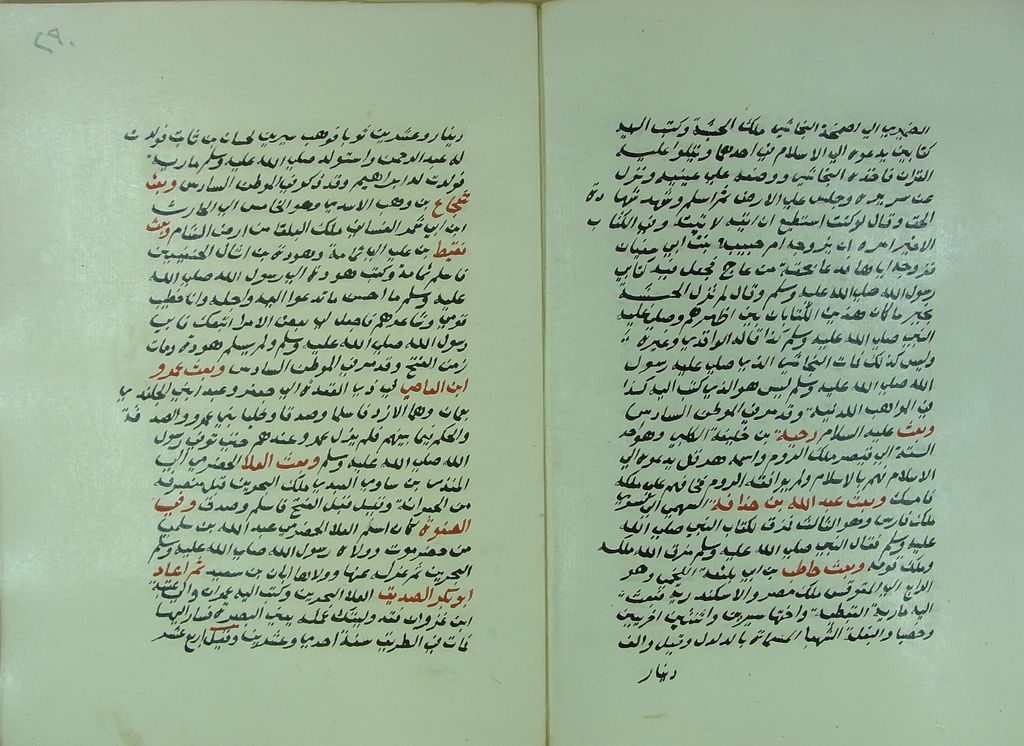 الضمري الي اصحمة النجاشي ملك الحبشة وكتب اليه
كتابين يدعوه الي الاسلام في احدهما ويتلوا عليه
القران فاخذه النجاشي ووضعه علي عينيه ونزل
عن سريره وجلس علي الارض ثم اسلم وشهد شهادة
الحق وقال لو كنت استطيع ان اتيه لاتيته وفي الكتاب
الاخر امره ان يزوجه ام حبيبة بنت ابي سفيان
فزوجه اياها فدعا بحقة من عاج فجعل فيه كتابي
رسول الله صلي الله عليه وسلم وقال لم تزل الحبشة
بخير ما كان هذين الكتابان بين اظهرهم وصلي عليه
النبي صلي الله عليه وسلم كذا قاله الواقدي وغيره
وليس كذلك فان النجاشي الذي صلي عليه رسول
الله صلي الله عليه وسلم ليس هو الذي كتب اليه كذا
في المواهب اللدنية وقد مر في الموطن السادس
وبعث عليه السلام دحية بن خليفة الكلبي وهو احد
الستة الي قيصر ملك الروم واسمه هرقل يدعوه الي
الاسلام فهم بالاسلام ولم يوافقه الروم فخافهم علي ملكه
فامسك وبعث عبد الله بن حذافة السهمي الي كسري
ملك فارس وهو الثالث فمزق كتاب النبي صلي الله
عليه وسلم فقال النبي صلي الله عليه وسلم مزق الله ملكه
وملك قومه وبعث حاطب بن ابي بلتعة اللخمي وهو
الرابع الي المقوقس ملك مصر والاسكندرية فبعث
اليه مارية القبطية واختها سيرين واثنتين اخريين
وخصيا والبغلة الشهبا المسماة بالدلدل وقيل والف
دينار
٢٩٠
دينار وعشرين ثوبا فوهب سيرين لحسان بن ثابت فولدت
له عبد الرحمن واستولد صلي الله عليه وسلم مارية
فولدت له ابراهيم وقد ذكر في الموطن السادس وبعث
شجاع بن وهب الاسدي وهو الخامس الي الحارث
ابن ابي شمر الغساني ملك البلقا من ارض الشام وبعث
سليط بن عمرو الي ثمامة وهودة بن اثال الحنفيين
فاسلم ثمامة وكتب هودة الي رسول الله صلي الله
عليه وسلم ما احسن ما تدعوا اليه واجله وانا خطيب
قومي وشاعرهم فاجعل لي بعض الامر اتبعك فابي
رسول الله صلي الله عليه وسلم ولم يسلم هودة ومات
زمن الفتح وقد مر في الموطن السادس وبعث عمرو
ابن العاصي في ذي القعدة الي جيفر وعبد ابني الجلندي
بعمان وهما الازد فاسلما وصدقا وخليا بين عمرو والصدقة
والحكم فيما بينهم فلم يزل عمرو عندهم حتي توفي رسول
الله صلي الله عليه وسلم وبعث العلا الحضرمي الي
المنذر بن ساوي العبدي ملك البحرين قبل منصرفه
من الجعرانة وقيل قبل الفتح فاسلم وصدق وفي
الصفوة كان اسلم العلا الحضرمي عبد الله بن سلمي
من حضرموت وولاه رسول الله صلي الله عليه وسلم
البحرين ثم عزله عنها وولاها ابان بن سعيد ثم اعاد
ابو بكر الصديق العلا البحرين وكتب اليه عمر ان والي عتبة
ابن غزوان فقد وليتك عمله يعني البصرة فسار اليها
فمات في الطريق سنة احدي وعشرين وقيل اربع عشر